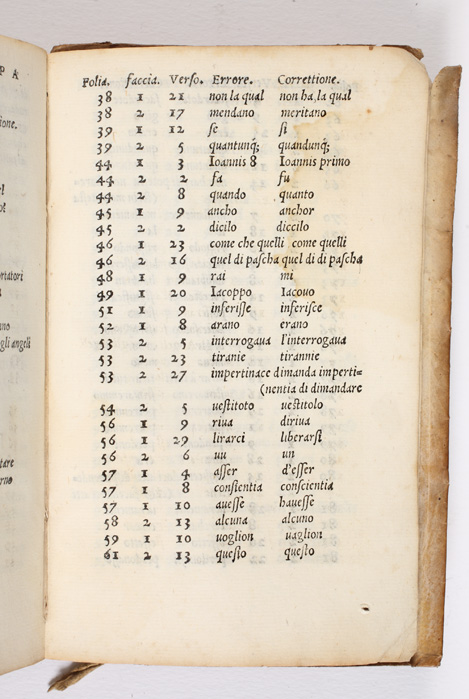 P A
ione.
ortatori
uno
gli angeli
tare
erno
Folia. faccia. Verso. Errore. Correttione.
38 1 21 non la qual non ha la qual
38 2 17 mendano meritano
39 1 12 se si
39 2 5 quantunq; quandunq;
44 1 3 Ioannis 8 Ioannis primo
44 2 2 fa fu
44 2 8 quando quanto
45 1 9 ancho anchor
45 2 2 dicilo diccilo
46 1 23 come che quelli come quelli
46 2 16 quel di pascha quel di di pascha
48 1 9 rai mi
49 1 20 Iacoppo Iacouo
51 1 9 inferisse inferisce
52 1 8 arano erano
53 2 5 interrogaua l'interrogaua
53 2 23 tiranie tirannie
53 2 27 impertinace dimanda imperti=
(nentia di dimandare
54 2 5 uestitoto uestitolo
56 1 9 riua diriua
56 1 29 lirarci liberarsi
56 2 6 uu un
57 1 4 asser d'esser
57 1 8 consientia conscientia
57 1 10 auesse hauesse
58 2 13 alcuna alcuno
59 1 10 uoglion uaglion
61 2 13 questo questo